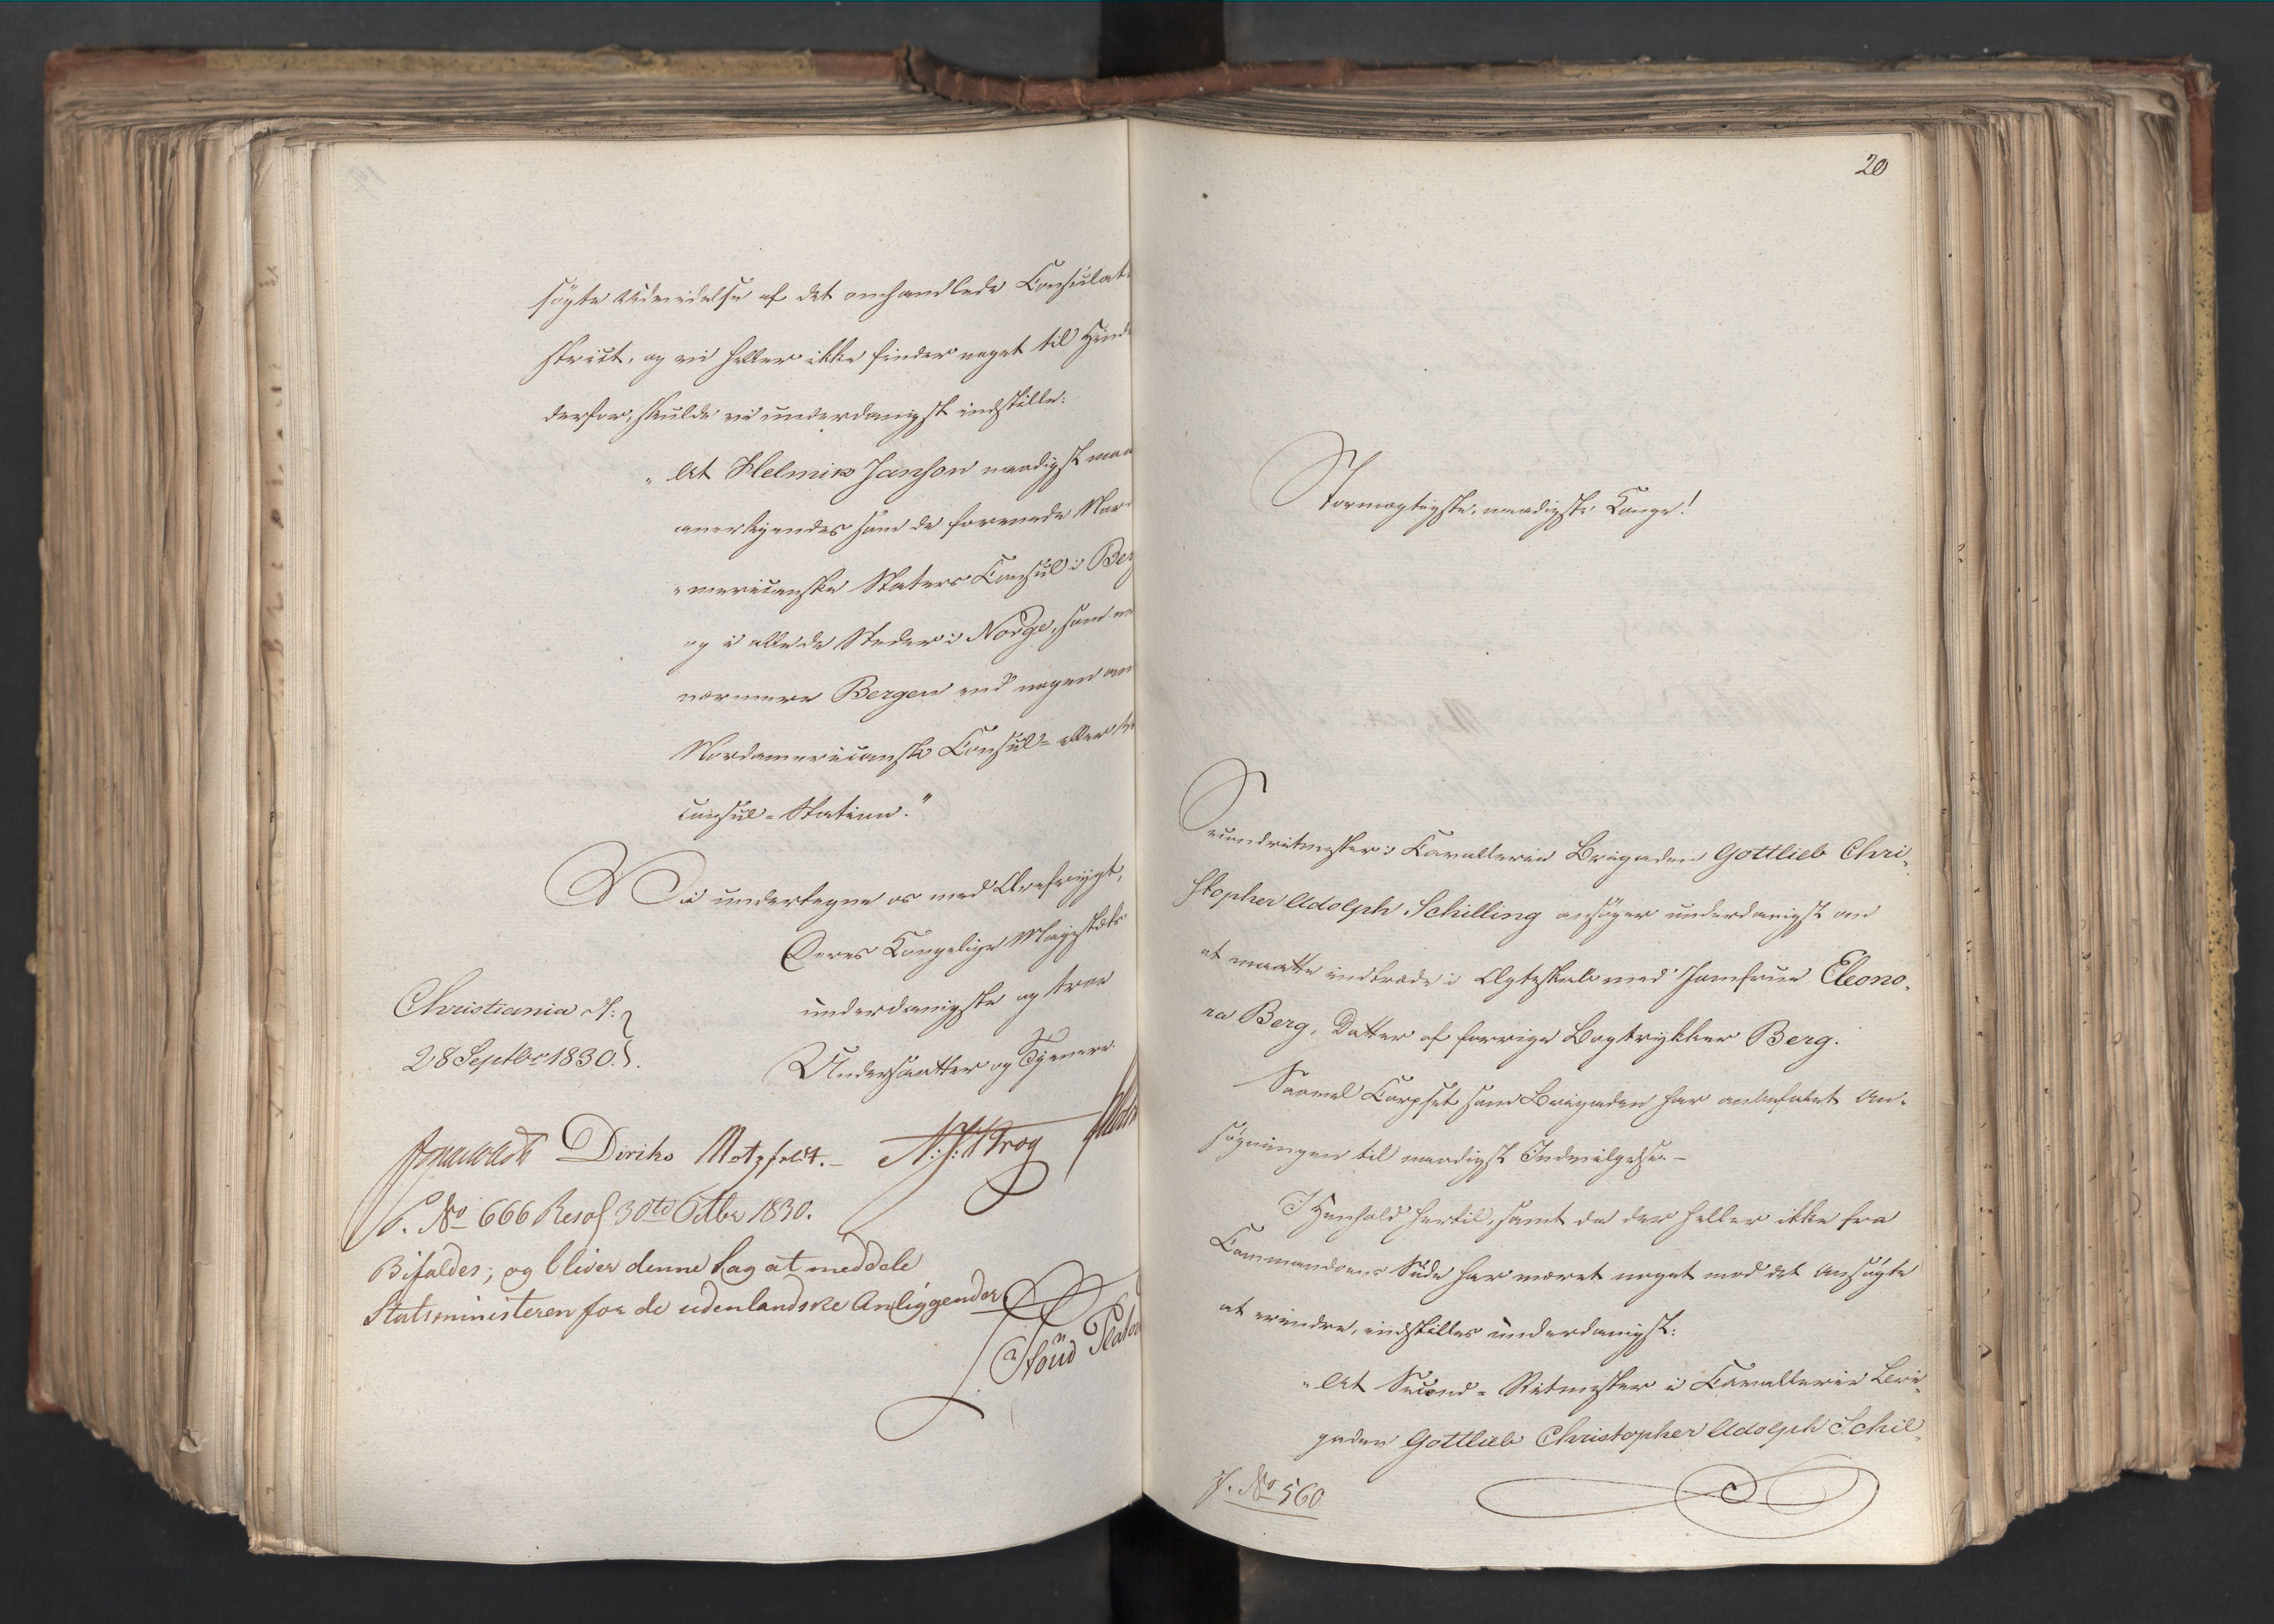 søgte Udvidelse af det omhandlede Consulat-
strict, og vi heller ikke finder noget til Hind
derfor, skulde vi underdanigst indstille:
"At Helmik Janson naadigst maa
anerkjendes som de forenede Nor-
"mericanske Staters Consul i Berg
og i alle de Steder i Norge, som er
nærmere Bergen end nogen an
Nordamericansk Consul- eller
consul-Station."
Vi undertegne os med Ærefrygt,
Deres Kongelige Majestæts
underdanigste og troe
Undersaatter og Tjenere.
Christiania d:
28 Septbr 1830.
Diriks Motzfeldt.- N: J: Krog
S. No 666 Resol 30te Octbr 1830.
Bifaldes; og bliver denne Sag at meddele
Statsministeren for de udenlandske Anliggender
20
Stormægtigste, naadigste Konge!
Secondritmester i Cavallerie Brigaden Gottlieb Chri-
stopher Adolph Schilling ansøger underdanigst om
at maatte indtræde i Ægteskab med Jomfrue Eleono-
ra Berg, Datter af forrige Bogtrykker Berg.
Saavel Corpset som Brigaden har anbefalet An-
søgningen til naadigst Indvilgelse.-
I Henhold hertil, samt da der heller ikke fra
Commandoens Side har været noget mod det Ansøgte
at erindre, indstilles underdanigst:
"At Second-Ritmester i Cavallerie Bri-
gaden Gottlieb Christopher Adolph Schil-
J. No 560